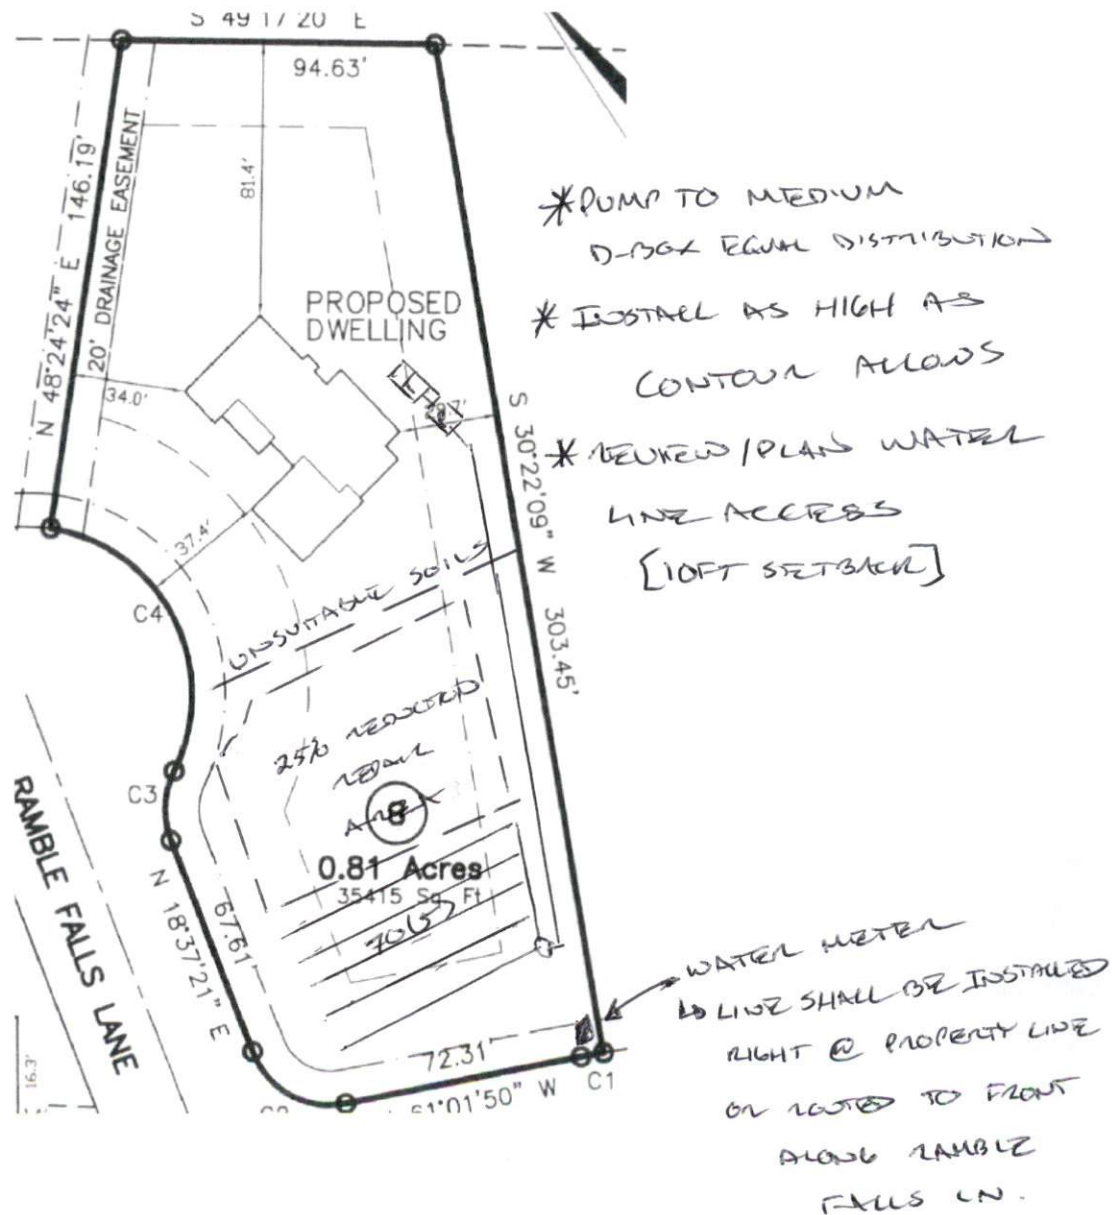 S 49 17 20 E
94.63'
N 48°24'24" E 146.19'
20' DRAINAGE EASEMENT
81.4'
PROPOSED
DWELLING
34.0'
29.7'
37.4'
S 30°22'09" W 303.45'
C4
C3
UNSUITABLE SOILS
25% REDUCTION
REPAIR
AREA
8
0.81 Acres
35415 Sq Ft
RAMBLE FALLS LANE
N 18°37'21" E
67.61'
72.31'
61°01'50" W
C1
C2
16.3'
* PUMP TO MEDIUM
D-BOX EQUAL DISTRIBUTION
* INSTALL AS HIGH AS
CONTOUR ALLOWS
* REVIEW/PLAN WATER
LINE ACCESS
[10FT SETBACK]
WATER METER
↳ LINE SHALL BE INSTALLED
RIGHT @ PROPERTY LINE
OR ROUTED TO FRONT
ALONG RAMBLE
FALLS LN.